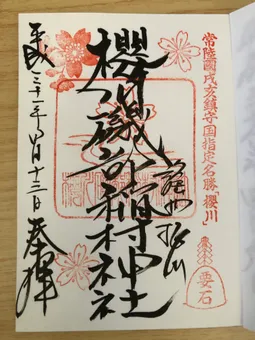 常陸國戌亥鎮守国指定名勝「櫻川」
要石
櫻川磯部稲村神社
平成三十一年四月十三日
奉拝